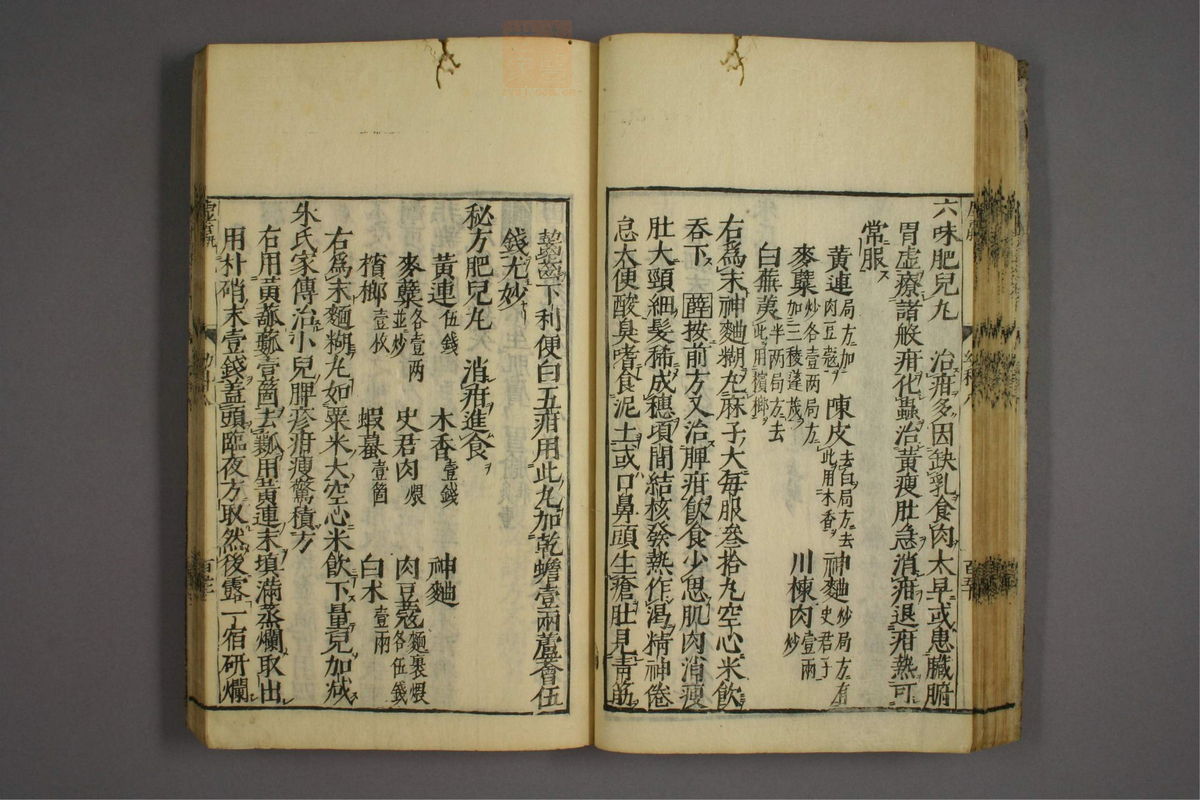 六味肥兒丸　治疳多因缺乳食肉太早或患臟腑
胃虛療諸般疳化蟲治黃瘦肚急消疳退疳熱可
常服
黃連局方加肉豆蔻　陳皮去白局方去此用木香　神麯炒局方有史君子
麥蘗炒各壹兩局方加三稜蓬莪　川楝肉壹兩炒
白蕪荑半兩局方去此用檳榔
右爲末神麯糊丸麻子大每服叄拾丸空心米飲
吞下　薛按前方又治脾疳飲食少思肌肉消瘦
肚大頸細髮稀成穗項間結核發熱作渴精神倦
怠大便酸臭嗜食泥土或口鼻頭生瘡肚見青筋
齧齒下利便白五疳用此丸加乾蟾壹兩蘆薈伍
錢尤妙
秘方肥兒丸　消疳進食
黃連伍錢　木香壹錢　神麯
麥蘗各壹兩並炒　史君肉煨　肉豆蔻麵裹煨各伍錢
檳榔壹枚　蝦蟇壹箇　白朮壹兩
右爲末麵糊丸如粟米大空心米飲下量兒加減
朱氏家傳治小兒脾疹疳瘦驚積方
右用黃瓠瓤壹箇去瓤用黃連末填滿蒸爛取出
用朴硝末壹錢蓋頭臨夜方取然後露一宿研爛